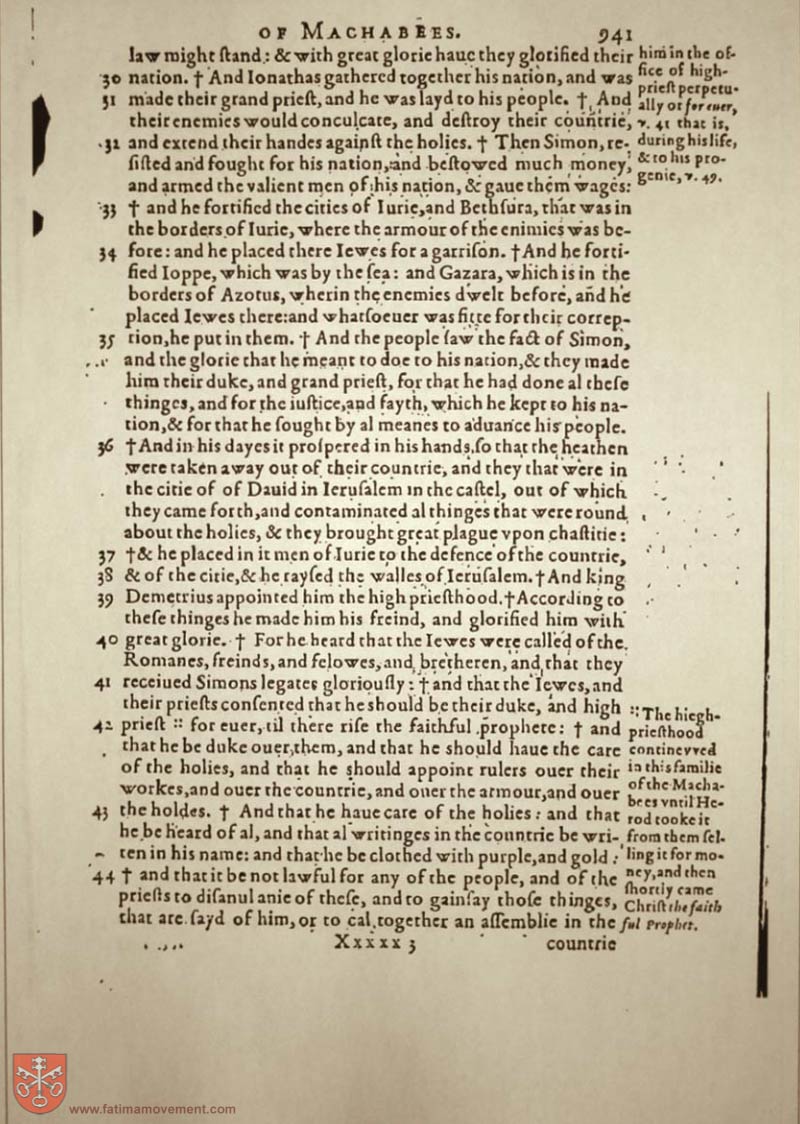 OF MACHABEES. 941
law might ſtand: & with great glorie haue they glorified their
30 nation. † And Ionathas gathered together his nation, and was
31 made their grand prieſt, and he was layd to his people. † And
their enemies would conculcate, and deſtroy their countrie,
32 and extend their handes againſt the holies. † Then Simon, re-
ſiſted and fought for his nation, and beſtowed much money,
and armed the valient men of his nation, & gaue them wages:
33 † and he fortified the cities of Iurie, and Bethſura, that was in
the borders of Iurie, where the armour of the enimies was be-
34 fore: and he placed there Iewes for a garriſon. † And he forti-
fied Ioppe, which was by the ſea: and Gazara, which is in the
borders of Azotus, wherin the enemies dwelt before, and he
placed Iewes there: and whatſoeuer was fitte for their correp-
35 tion, he put in them. † And the people ſaw the fact of Simon,
and the glorie that he meant to doe to his nation, & they made
him their duke, and grand prieſt, for that he had done al theſe
thinges, and for the iuſtice, and fayth, which he kept to his na-
tion, & for that he ſought by al meanes to aduance his people.
36 † And in his dayes it proſpered in his hands, ſo that the heathen
were taken away out of their countrie, and they that were in
the citie of of Dauid in Ieruſalem in the caſtel, out of which
they came forth, and contaminated al thinges that were round
about the holies, & they brought great plague vpon chaſtitie:
37 † & he placed in it men of Iurie to the defence of the countrie,
38 & of the citie, & he rayſed the walles of Ieruſalem. † And king
39 Demetrius appointed him the high prieſthood. † According to
theſe thinges he made him his freind, and glorified him with
40 great glorie. † For he heard that the Iewes were called of the
Romanes, freinds, and felowes, and bretheren, and that they
41 receiued Simons legates gloriouſly: † and that the Iewes, and
their prieſts conſented that he ſhould be their duke, and high
42 prieſt :: for euer, til there riſe the faithful prophete: † and
that he be duke ouer them, and that he ſhould haue the care
of the holies, and that he ſhould appoint rulers ouer their
workes, and ouer the countrie, and ouer the armour, and ouer
43 the holdes. † And that he haue care of the holies: and that
he be heard of al, and that al writinges in the countrie be wri-
ten in his name: and that he be clothed with purple, and gold:
44 † and that it be not lawful for any of the people, and of the
prieſts to diſanul anie of theſe, and to gainſay thoſe thinges,
that are ſayd of him, or to cal together an aſſemblie in the
Xxxxx 3 countrie
him in the of-
fice of high-
prieſt perpetu-
ally or for euer,
v. 41 that is,
during his life,
& to his pro-
genie, v. 49.
:: The hiegh-
prieſthood
continewed
in this familie
of the Macha-
bees vntil He-
rod tooke it
from them ſel-
ling it for mo-
ney, and then
ſhortly came
Chriſt the faith
ful Prophet.
www.fatimamovement.com